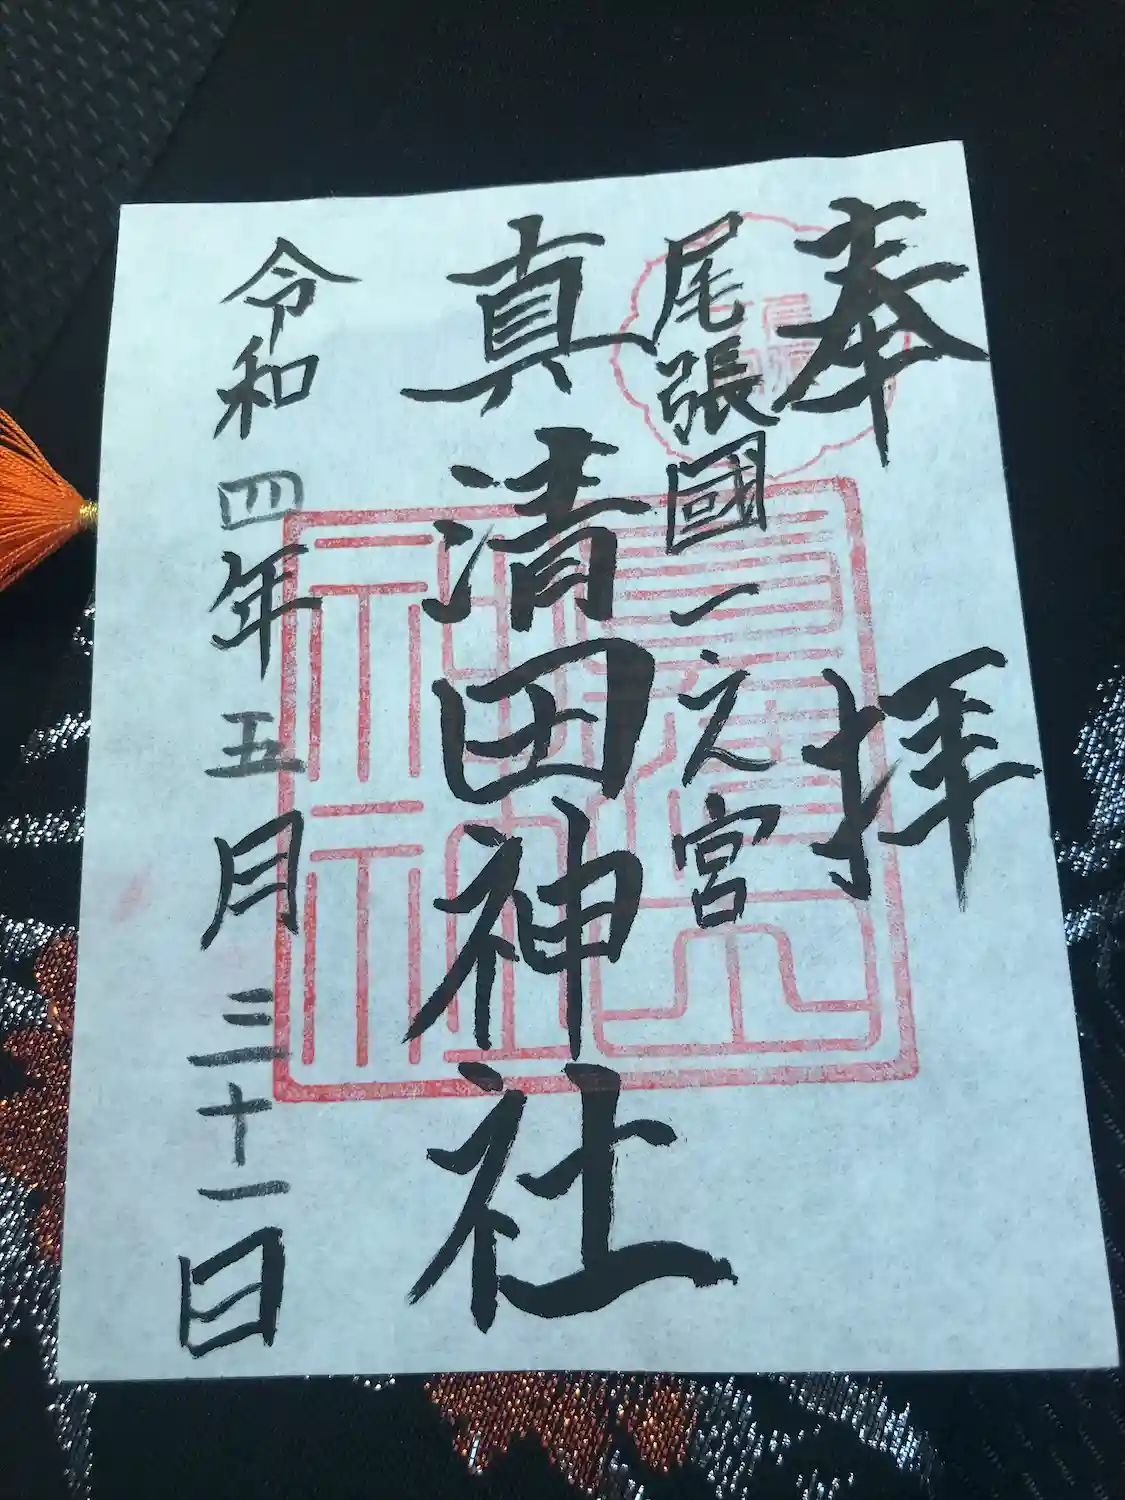 奉拝
尾張國一之宮
真清田神社
令和四年五月三十一日